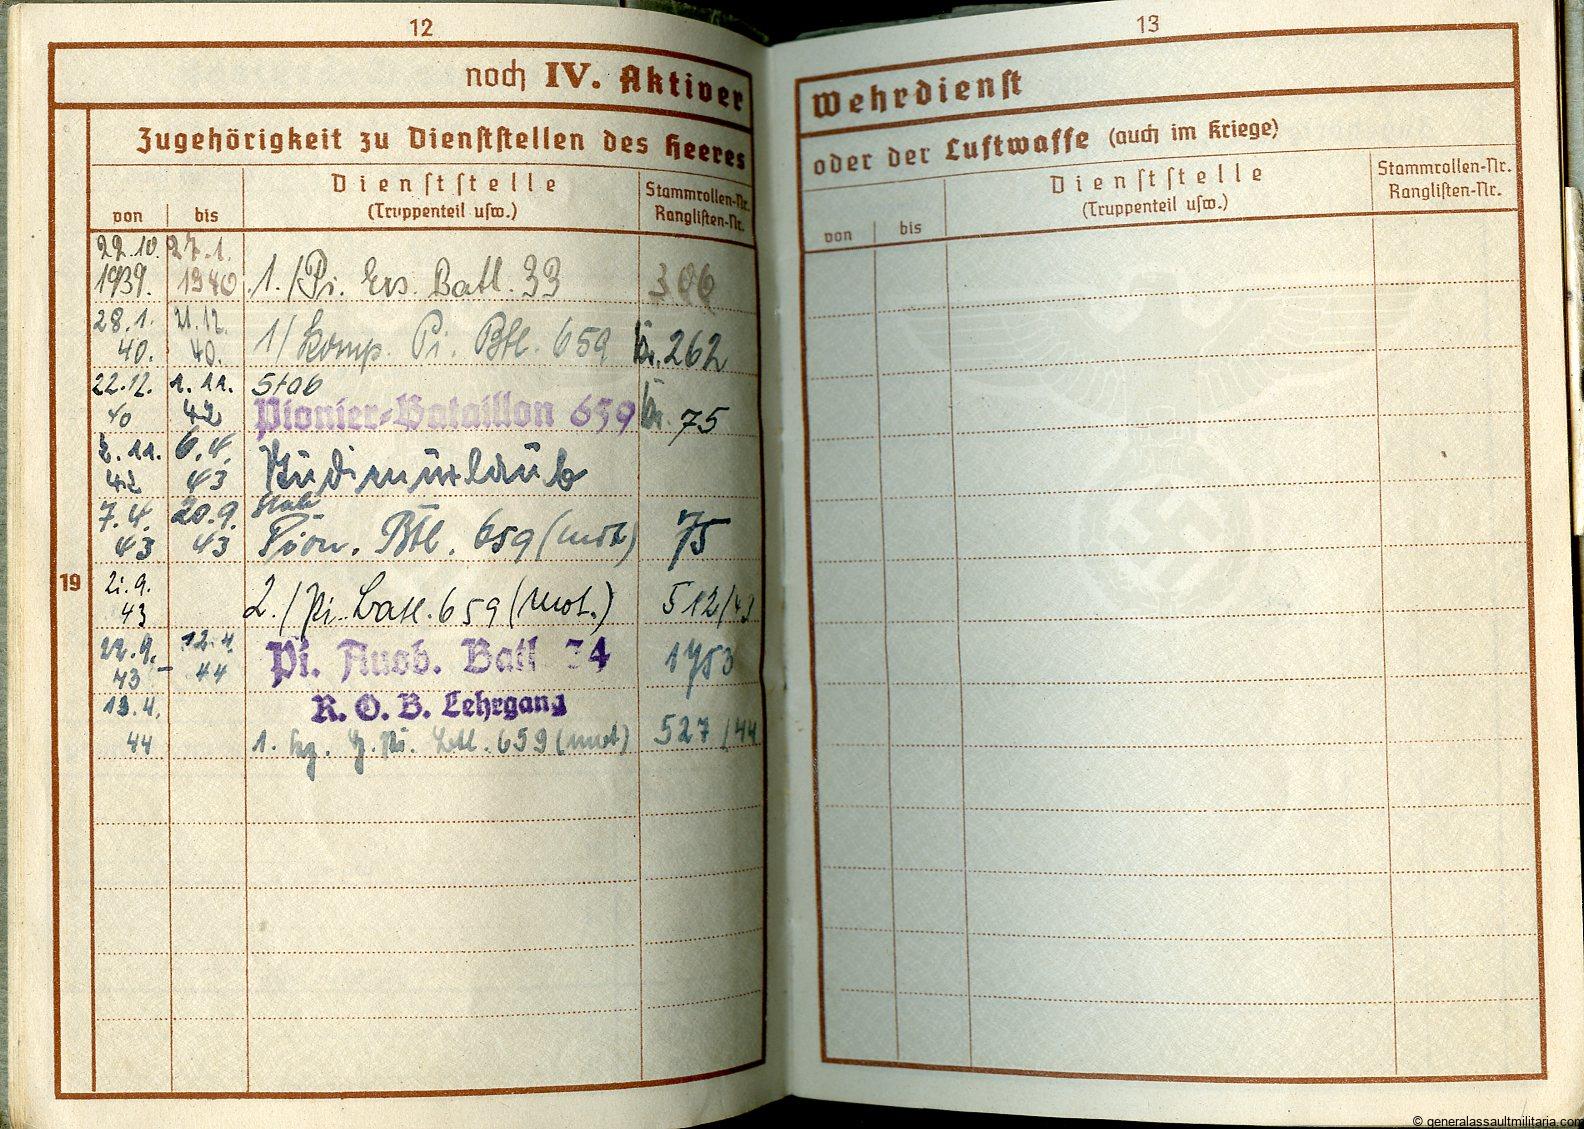 12
noch IV. Aktiver
Zugehörigkeit zu Dienststellen des Heeres
von bis
Dienststelle
(Truppenteil usw.)
Stammrollen-Nr.
Ranglisten-Nr.
22.10. 27.1.
1939. 1940 1./Pi. Ers. Batl. 33 306
28.1. 21.12.
40. 40. 1/ Komp. Pi. Btl. 659 262
22.12. 1.11. Stab
40 42 Pionier-Bataillon 659 75
2.11. 6.4.
42 43 Studienurlaub
7.4. 20.9. Stab
43 43 Pion. Btl. 659 (mot) 75
21.9.
43 2./Pi. Batl. 659 (mot.) 512/43
19
22.9. 12.4.
43 – 44 Pi. Ausb. Batl. 24 1753
R. O. B. Lehrgang
13.4.
44 1. Pi. Btl. 659 (mot) 527/44
13
Wehrdienst
oder der Luftwaffe (auch im Kriege)
von bis
Dienststelle
(Truppenteil usw.)
Stammrollen-Nr.
Ranglisten-Nr.
© generalassaultmilitaria.com